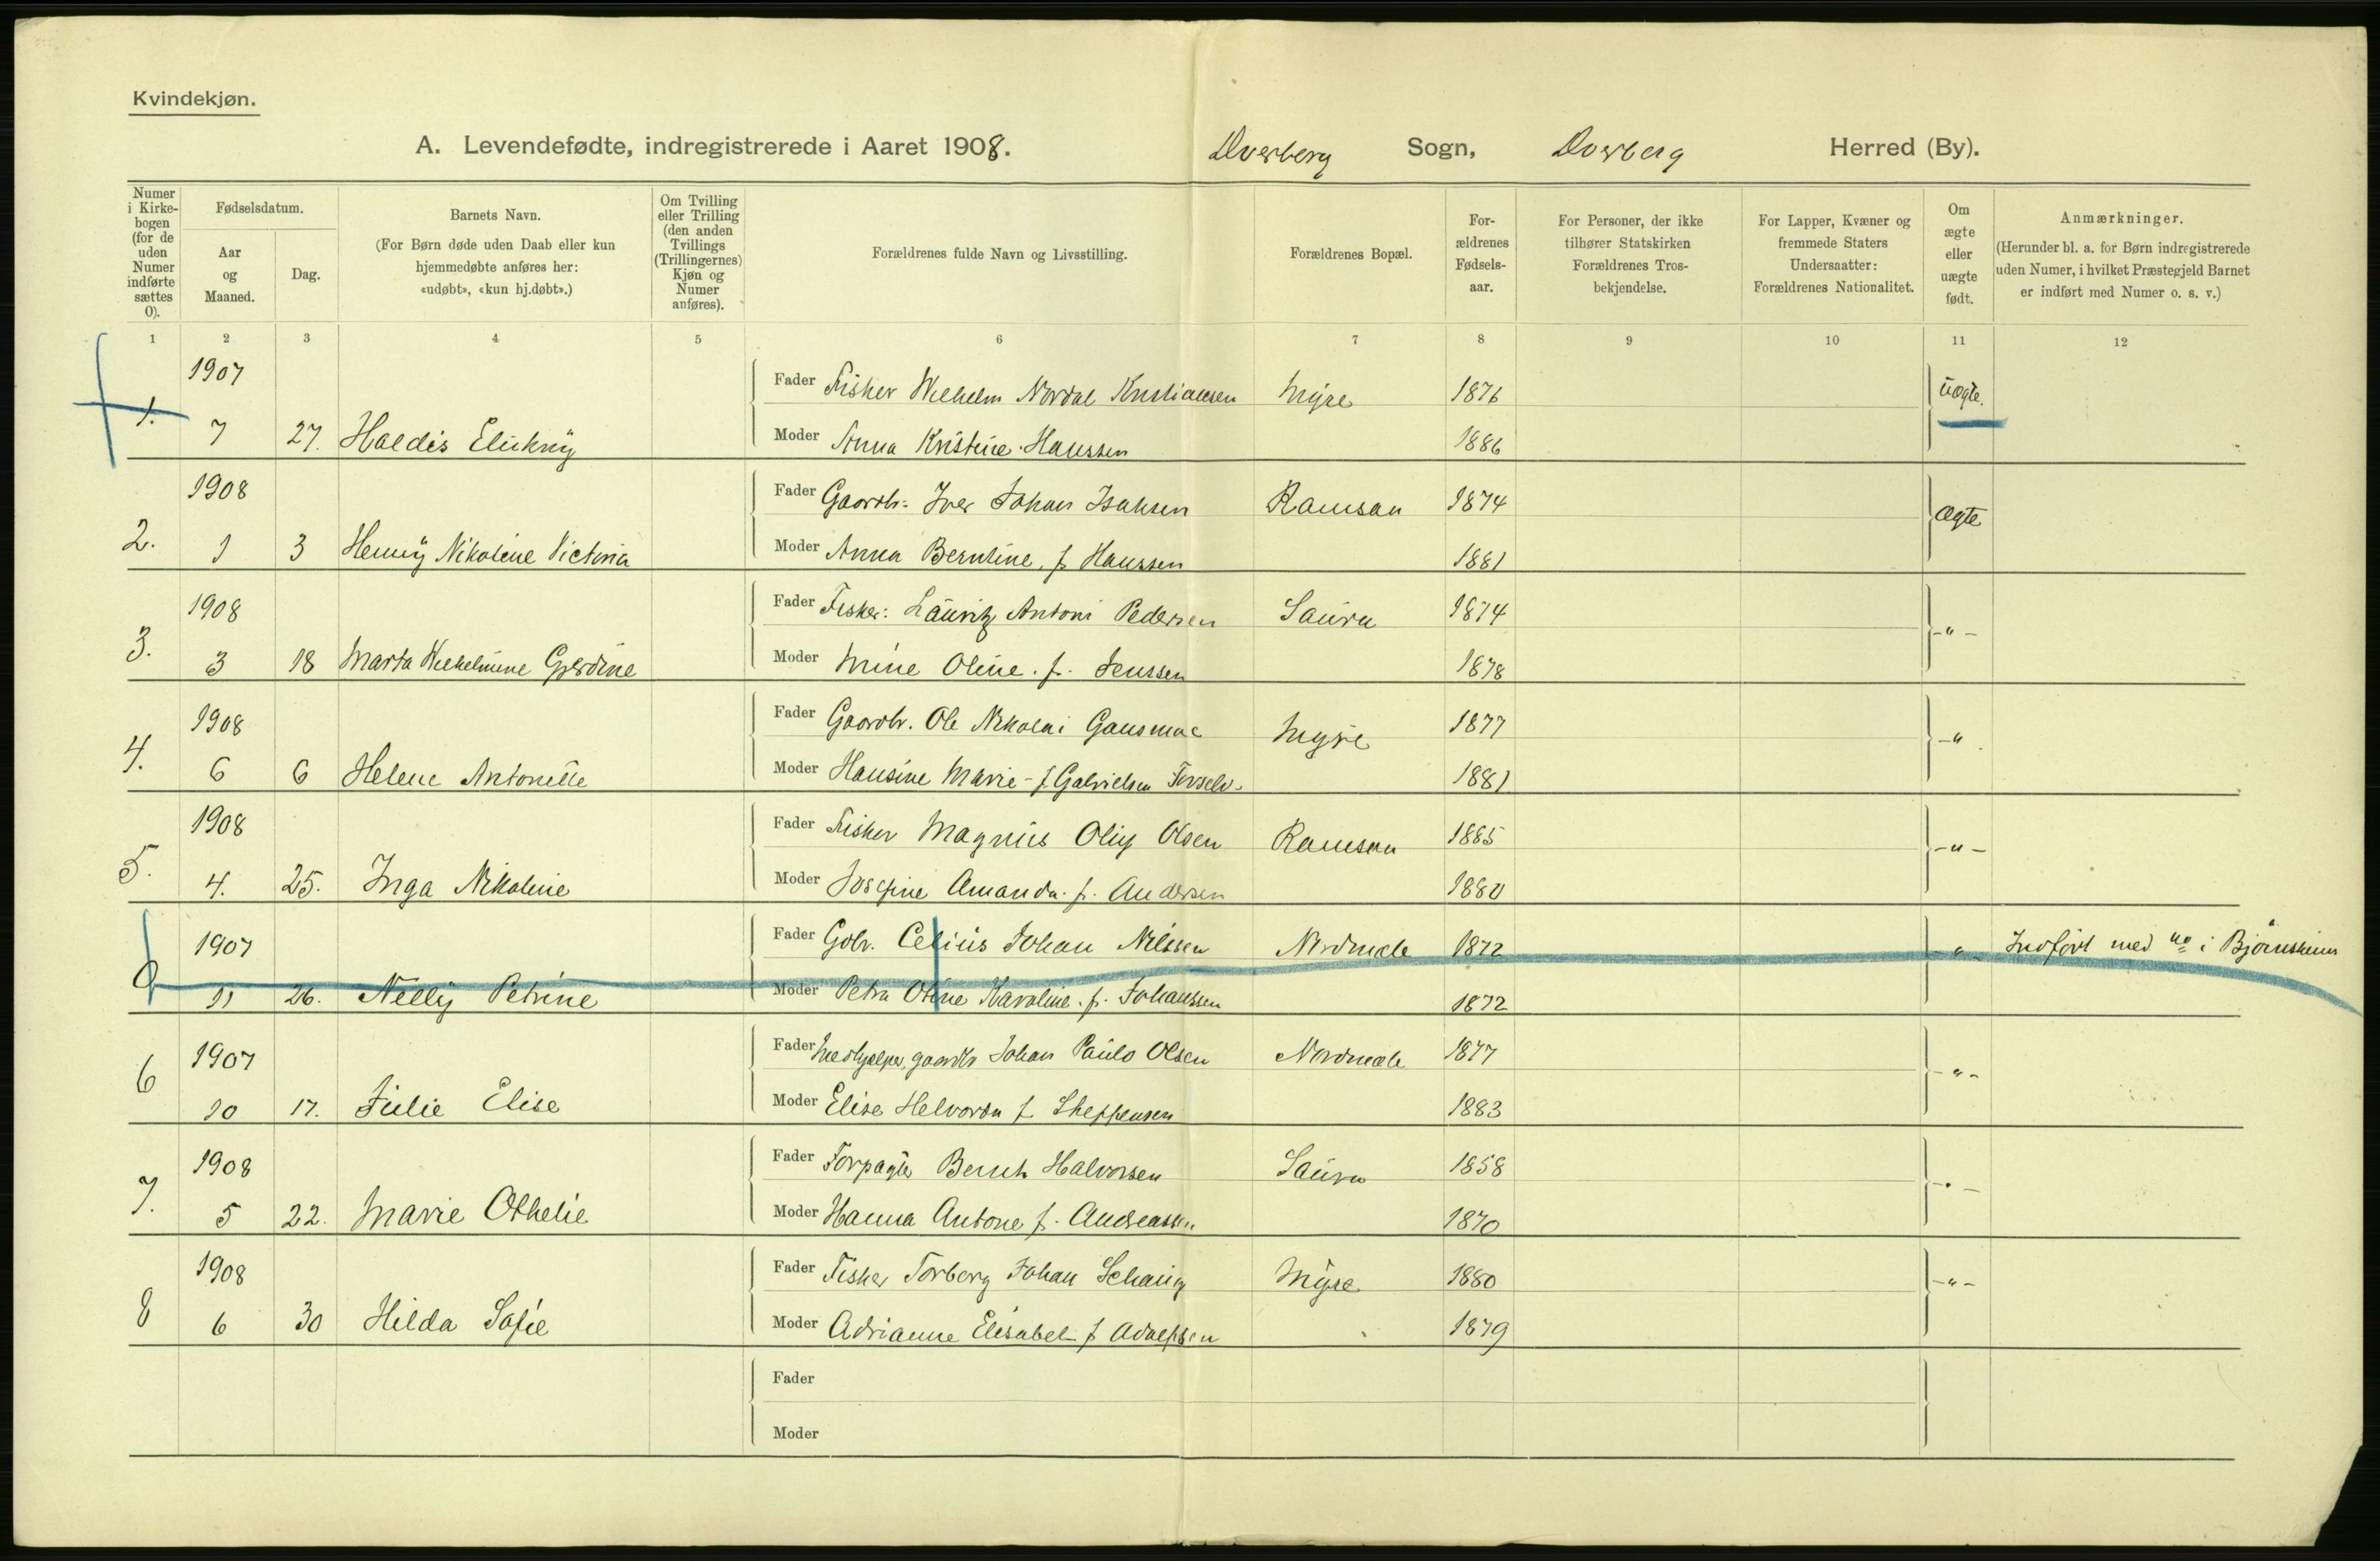 Kvindekjøn.
A. Levendefødte, indregistrerede i Aaret 1908. Dverberg Sogn, Dverberg Herred (By).
Numer i Kirkebogen (for de uden Numer indførte sættes 0).
Fødselsdatum.
Aar og Maaned.
Dag.
Barnets Navn.
(For Børn døde uden Daab eller kun hjemmedøbte anføres her: «udøbt», «kun hj.døbt».)
Om Tvilling eller Trilling (den anden Tvillings (Trillingernes) Kjøn og Numer anføres).
Forældrenes fulde Navn og Livsstilling.
Forældrenes Bopæl.
For-ældrenes Fødsels-aar.
For Personer, der ikke tilhører Statskirken Forældrenes Tros-bekjendelse.
For Lapper, Kvæner og fremmede Staters Undersaatter: Forældrenes Nationalitet.
Om ægte eller uægte født.
Anmærkninger.
(Herunder bl. a. for Børn indregistrerede uden Numer, i hvilket Præstegjeld Barnet er indført med Numer o. s. v.)
1 2 3 4 5 6 7 8 9 10 11 12
1907 Fader Fisker Wilhelm Nordal Kristiansen Myre 1876 uægte.
1. 7 27. Haldis Moder Anna Kristine Hanssen 1886
1908 Fader Gaardbr. Iver Johan Isaksen Ramsaa 1874 ægte
2. 1 3 Henny Nikoline Victoria Moder Anna Berntine f. Hanssen 1881
1908 Fader Fisker: Lauritz Antoni Pedersen Saura 1874 -"-
3. 3 18 Marta Wilhelmine Gjerdine Moder Mine Oline. f. Jenssen 1878
1908 Fader Gaardbr. Ole Nikolai Myre 1877 -"-
4. 6 6 Helene Antonette Moder Hansine Marie - f Gabrielsen 1881
1908 Fader Fisker Magnus Oluf Olsen Ramsaa 1885 -"-
5. 4. 25. Inga Nikoline Moder Josefine Amanda. f. Andersen 1880
1907 Fader Gbr. Celius Johan Nilssen Nordmele 1872 " Indført med no i Bjørnskinn
0 11 26. Nelly Petrine Moder Petra Oline Karoline. f. Johanssen 1872
1907 Fader Medhjælper, gaardbr Johan Paulo Olsen Nordmele 1877 -"-
6 10 17. Julie Elise Moder Elise Helvarda f. Steffensen 1883
1908 Fader Forpagter Bernt Halvorsen Saura 1858 -"-
7. 5 22. Marie Othelie Moder Hanna Antone f. Andreassen 1870
1908 Fader Fisker Torberg Johan Schang Myre 1880 -"-
8 6 30 Hilda Sofie Moder Adrianne Elisabet f Adolfsen 1879
Fader
Moder